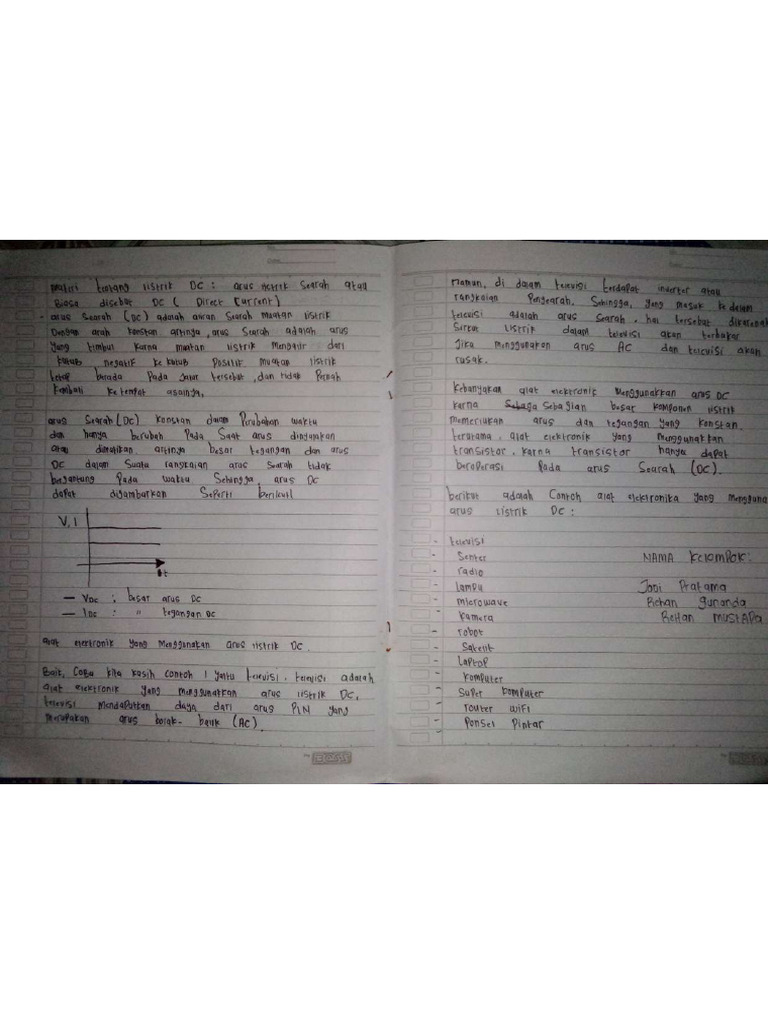 materi tentang listrik DC : arus listrik searah atau
Biasa disebut DC ( Direct Current)
- arus searah (DC) adalah aliran searah muatan listrik
Dengan arah konstan artinya, arus searah adalah arus
yang timbul karna muatan listrik mengalir dari
kutub negatif ke kutub positif muatan listrik
tetap berada pada jalur tersebut, dan tidak pernah
kembali ke tempat asalnya.
arus searah (DC) konstan dalam Perubahan waktu
dan hanya berubah pada saat arus dinyalakan
atau dimatikan artinya besar tegangan dan arus
DC dalam suatu rangkaian arus searah tidak
bergantung pada waktu sehingga arus DC
dapat digambarkan seperti berikut
V, I
t
— VDC : besar arus DC
— IDC : " tegangan DC
alat elektronik yang menggunakan arus listrik DC.
Baik, coba kita kasih contoh 1 yaitu televisi. televisi adalah
alat elektronik yang menggunakan arus listrik DC.
televisi mendapatkan daya dari arus PlN yang
merupakan arus bolak-balik (AC).
Namun, di dalam televisi terdapat inverter atau
rangkaian Pengearah. Sehingga, yang masuk ke dalam
televisi adalah arus searah. hal tersebut dikarenak
sirkuit listrik dalam televisi akan terbakar
Jika menggunakan arus AC dan televisi akan
rusak.
kebanyakan alat elektronik menggunakkan arus DC
karna Sebagian besar komponen listrik
memerlukan arus dan tegangan yang konstan.
terutama, alat elektronik yang menggunakkan
transistor. karna transistor hanya dapat
beroperasi pada arus Searah (DC).
berikut adalah contoh alat elektronika yang mengguna
arus listrik DC :
- televisi
- Senter
NAMA kelompok :
- radio
- lampu
Jodi Pratama
- microwave
Rehan gunanda
- kamera
Rehan mustapa
- robot
- Sakelit
- LapTop
- Komputer
- Super komputer
- router wifi
- Ponsel pintar